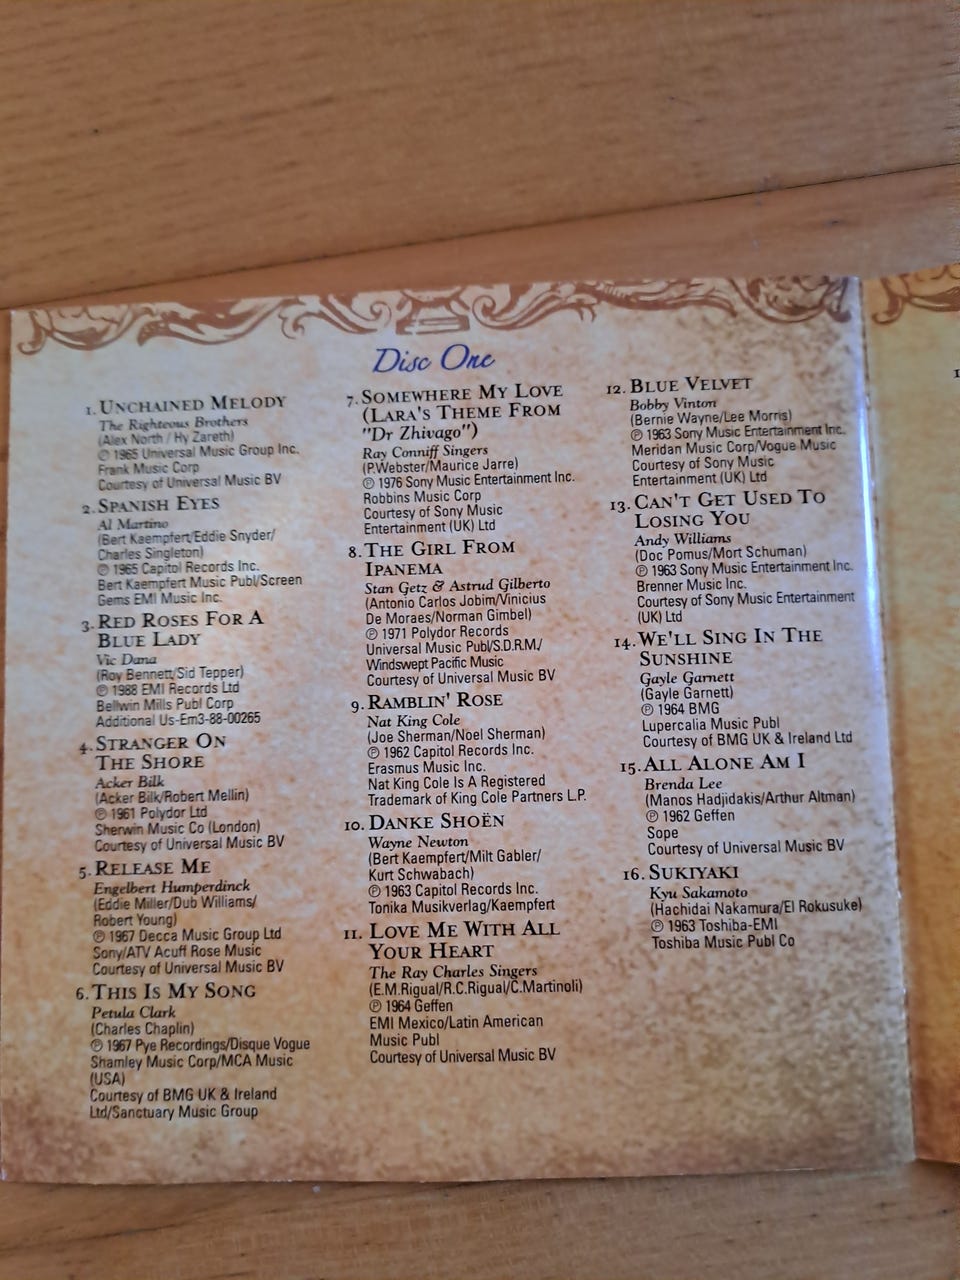 Disc One
1. UNCHAINED MELODY
The Righteous Brothers
(Alex North / Hy Zareth)
℗ 1965 Universal Music Group Inc.
Frank Music Corp
Courtesy of Universal Music BV
2. SPANISH EYES
Al Martino
(Bert Kaempfert/Eddie Snyder/
Charles Singleton)
℗ 1965 Capitol Records Inc.
Bert Kaempfert Music Publ/Screen
Gems EMI Music Inc.
3. RED ROSES FOR A
BLUE LADY
Vic Dana
(Roy Bennett/Sid Tepper)
℗ 1988 EMI Records Ltd
Bellwin Mills Publ Corp
Additional Us-Em3-88-00265
4. STRANGER ON
THE SHORE
Acker Bilk
(Acker Bilk/Robert Mellin)
℗ 1961 Polydor Ltd
Sherwin Music Co (London)
Courtesy of Universal Music BV
5. RELEASE ME
Engelbert Humperdinck
(Eddie Miller/Dub Williams/
Robert Young)
℗ 1967 Decca Music Group Ltd
Sony/ATV Acuff Rose Music
Courtesy of Universal Music BV
6. THIS IS MY SONG
Petula Clark
(Charles Chaplin)
℗ 1967 Pye Recordings/Disque Vogue
Shamley Music Corp/MCA Music
(USA)
Courtesy of BMG UK & Ireland
Ltd/Sanctuary Music Group
7. SOMEWHERE MY LOVE
(LARA'S THEME FROM
"DR ZHIVAGO")
Ray Conniff Singers
(P.Webster/Maurice Jarre)
℗ 1976 Sony Music Entertainment Inc.
Robbins Music Corp
Courtesy of Sony Music
Entertainment (UK) Ltd
8. THE GIRL FROM
IPANEMA
Stan Getz & Astrud Gilberto
(Antonio Carlos Jobim/Vinicius
De Moraes/Norman Gimbel)
℗ 1971 Polydor Records
Universal Music Publ/S.D.R.M./
Windswept Pacific Music
Courtesy of Universal Music BV
9. RAMBLIN' ROSE
Nat King Cole
(Joe Sherman/Noel Sherman)
℗ 1962 Capitol Records Inc.
Erasmus Music Inc.
Nat King Cole Is A Registered
Trademark of King Cole Partners L.P.
10. DANKE SHOËN
Wayne Newton
(Bert Kaempfert/Milt Gabler/
Kurt Schwabach)
℗ 1963 Capitol Records Inc.
Tonika Musikverlag/Kaempfert
11. LOVE ME WITH ALL
YOUR HEART
The Ray Charles Singers
(E.M.Rigual/R.C.Rigual/C.Martinoli)
℗ 1964 Geffen
EMI Mexico/Latin American
Music Publ
Courtesy of Universal Music BV
12. BLUE VELVET
Bobby Vinton
(Bernie Wayne/Lee Morris)
℗ 1963 Sony Music Entertainment Inc.
Meridan Music Corp/Vogue Music
Courtesy of Sony Music
Entertainment (UK) Ltd
13. CAN'T GET USED TO
LOSING YOU
Andy Williams
(Doc Pomus/Mort Schuman)
℗ 1963 Sony Music Entertainment Inc.
Brenner Music Inc.
Courtesy of Sony Music Entertainment
(UK) Ltd
14. WE'LL SING IN THE
SUNSHINE
Gayle Garnett
(Gayle Garnett)
℗ 1964 BMG
Lupercalia Music Publ
Courtesy of BMG UK & Ireland Ltd
15. ALL ALONE AM I
Brenda Lee
(Manos Hadjidakis/Arthur Altman)
℗ 1962 Geffen
Sope
Courtesy of Universal Music BV
16. SUKIYAKI
Kyu Sakamoto
(Hachidai Nakamura/El Rokusuke)
℗ 1963 Toshiba-EMI
Toshiba Music Publ Co
1